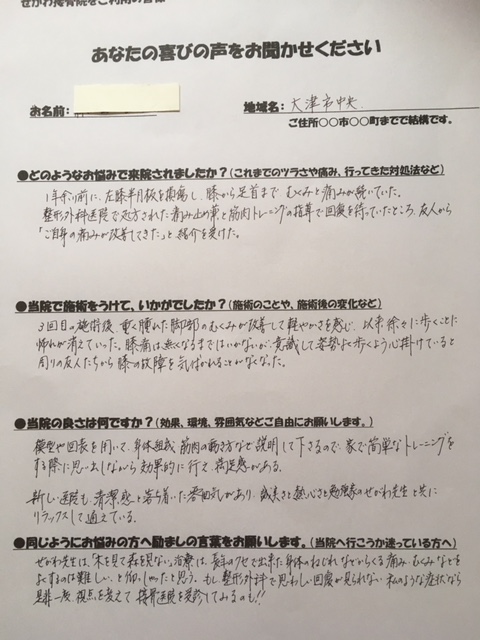 せがわ接骨院をご利用の皆様
あなたの喜びの声をお聞かせください
お名前:
地域名: 大津市中央
ご住所○○市○○町までで結構です。
●どのようなお悩みで来院されましたか?(これまでのツラさや痛み、行ってきた対処法など)
1年余り前に、左膝半月板を損傷し、膝から足首まで むくみと痛みが続いていた。
整形外科医院で処方された痛み止め薬と筋肉トレーニングの指導で回復を待っていたところ、友人から
「ご自身の痛みが改善してきた」と紹介を受けた。
●当院で施術をうけて、いかがでしたか?(施術のことや、施術後の変化など)
3回目の施術後、重く腫れた脚部のむくみが改善して軽やかさを感じ、以来徐々に歩くことに
怖れが消えていった。膝痛は無くなるまではいかないが、意識して姿勢よく歩くよう心掛けていると
周りの友人たちから膝の故障を気づかれることがなくなった。
●当院の良さは何ですか?(効果、環境、雰囲気などご自由にお願いします。)
模型や図表を用いて、身体組織、筋肉の動き方など説明して下さるので、家で簡単なトレーニングを
する際に思い出しながら効果的に行え、満足感がある。
新しい医院も、清潔感と落ち着いた雰囲気があり、誠実さと熱心さと勉強家のせがわ先生と共に
リラックスして通えている。
●同じようにお悩みの方へ励ましの言葉をお願いします。(当院へ行こうか迷っている方へ)
せがわ先生は、「木を見て森を見ない」治療は、長年のクセで出来た身体のねじれなどからくる痛み・むくみなどを
よくするのは難しい、と仰しゃったと思う。もし整形外科で思わしい回復が見られない私のような症状なら
是非一度、視点を変えて 接骨医院を受診してみるのも!!